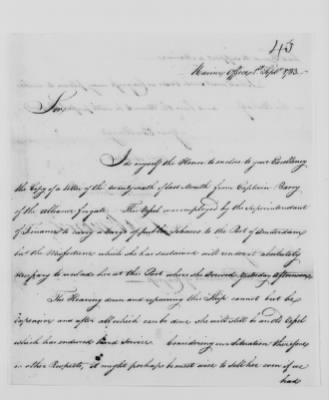 45
Marine Office 1st Sept. 1783.
Sir,
I do myself the Honor to enclose to your Excellency
the Copy of a letter of the twenty ninth of last Month from Captain Barry
of the Alliance frigate. This Vessel was employed by the Superintendant
of Finance to carry a Cargo of public Tobacco to the Port of Amsterdam
but the Misfortune which she has sustained will render it absolutely
necessary to unlade her at this Port where she arrived yesterday Afternoon
The Heaving down and repairing this Ship cannot but be
Expensive and after all which can be done she will still be an old Vessel
which has endured hard Service. Considering our Situation therefore
in other Respects, it might perhaps be most wise to sell her even if we
had